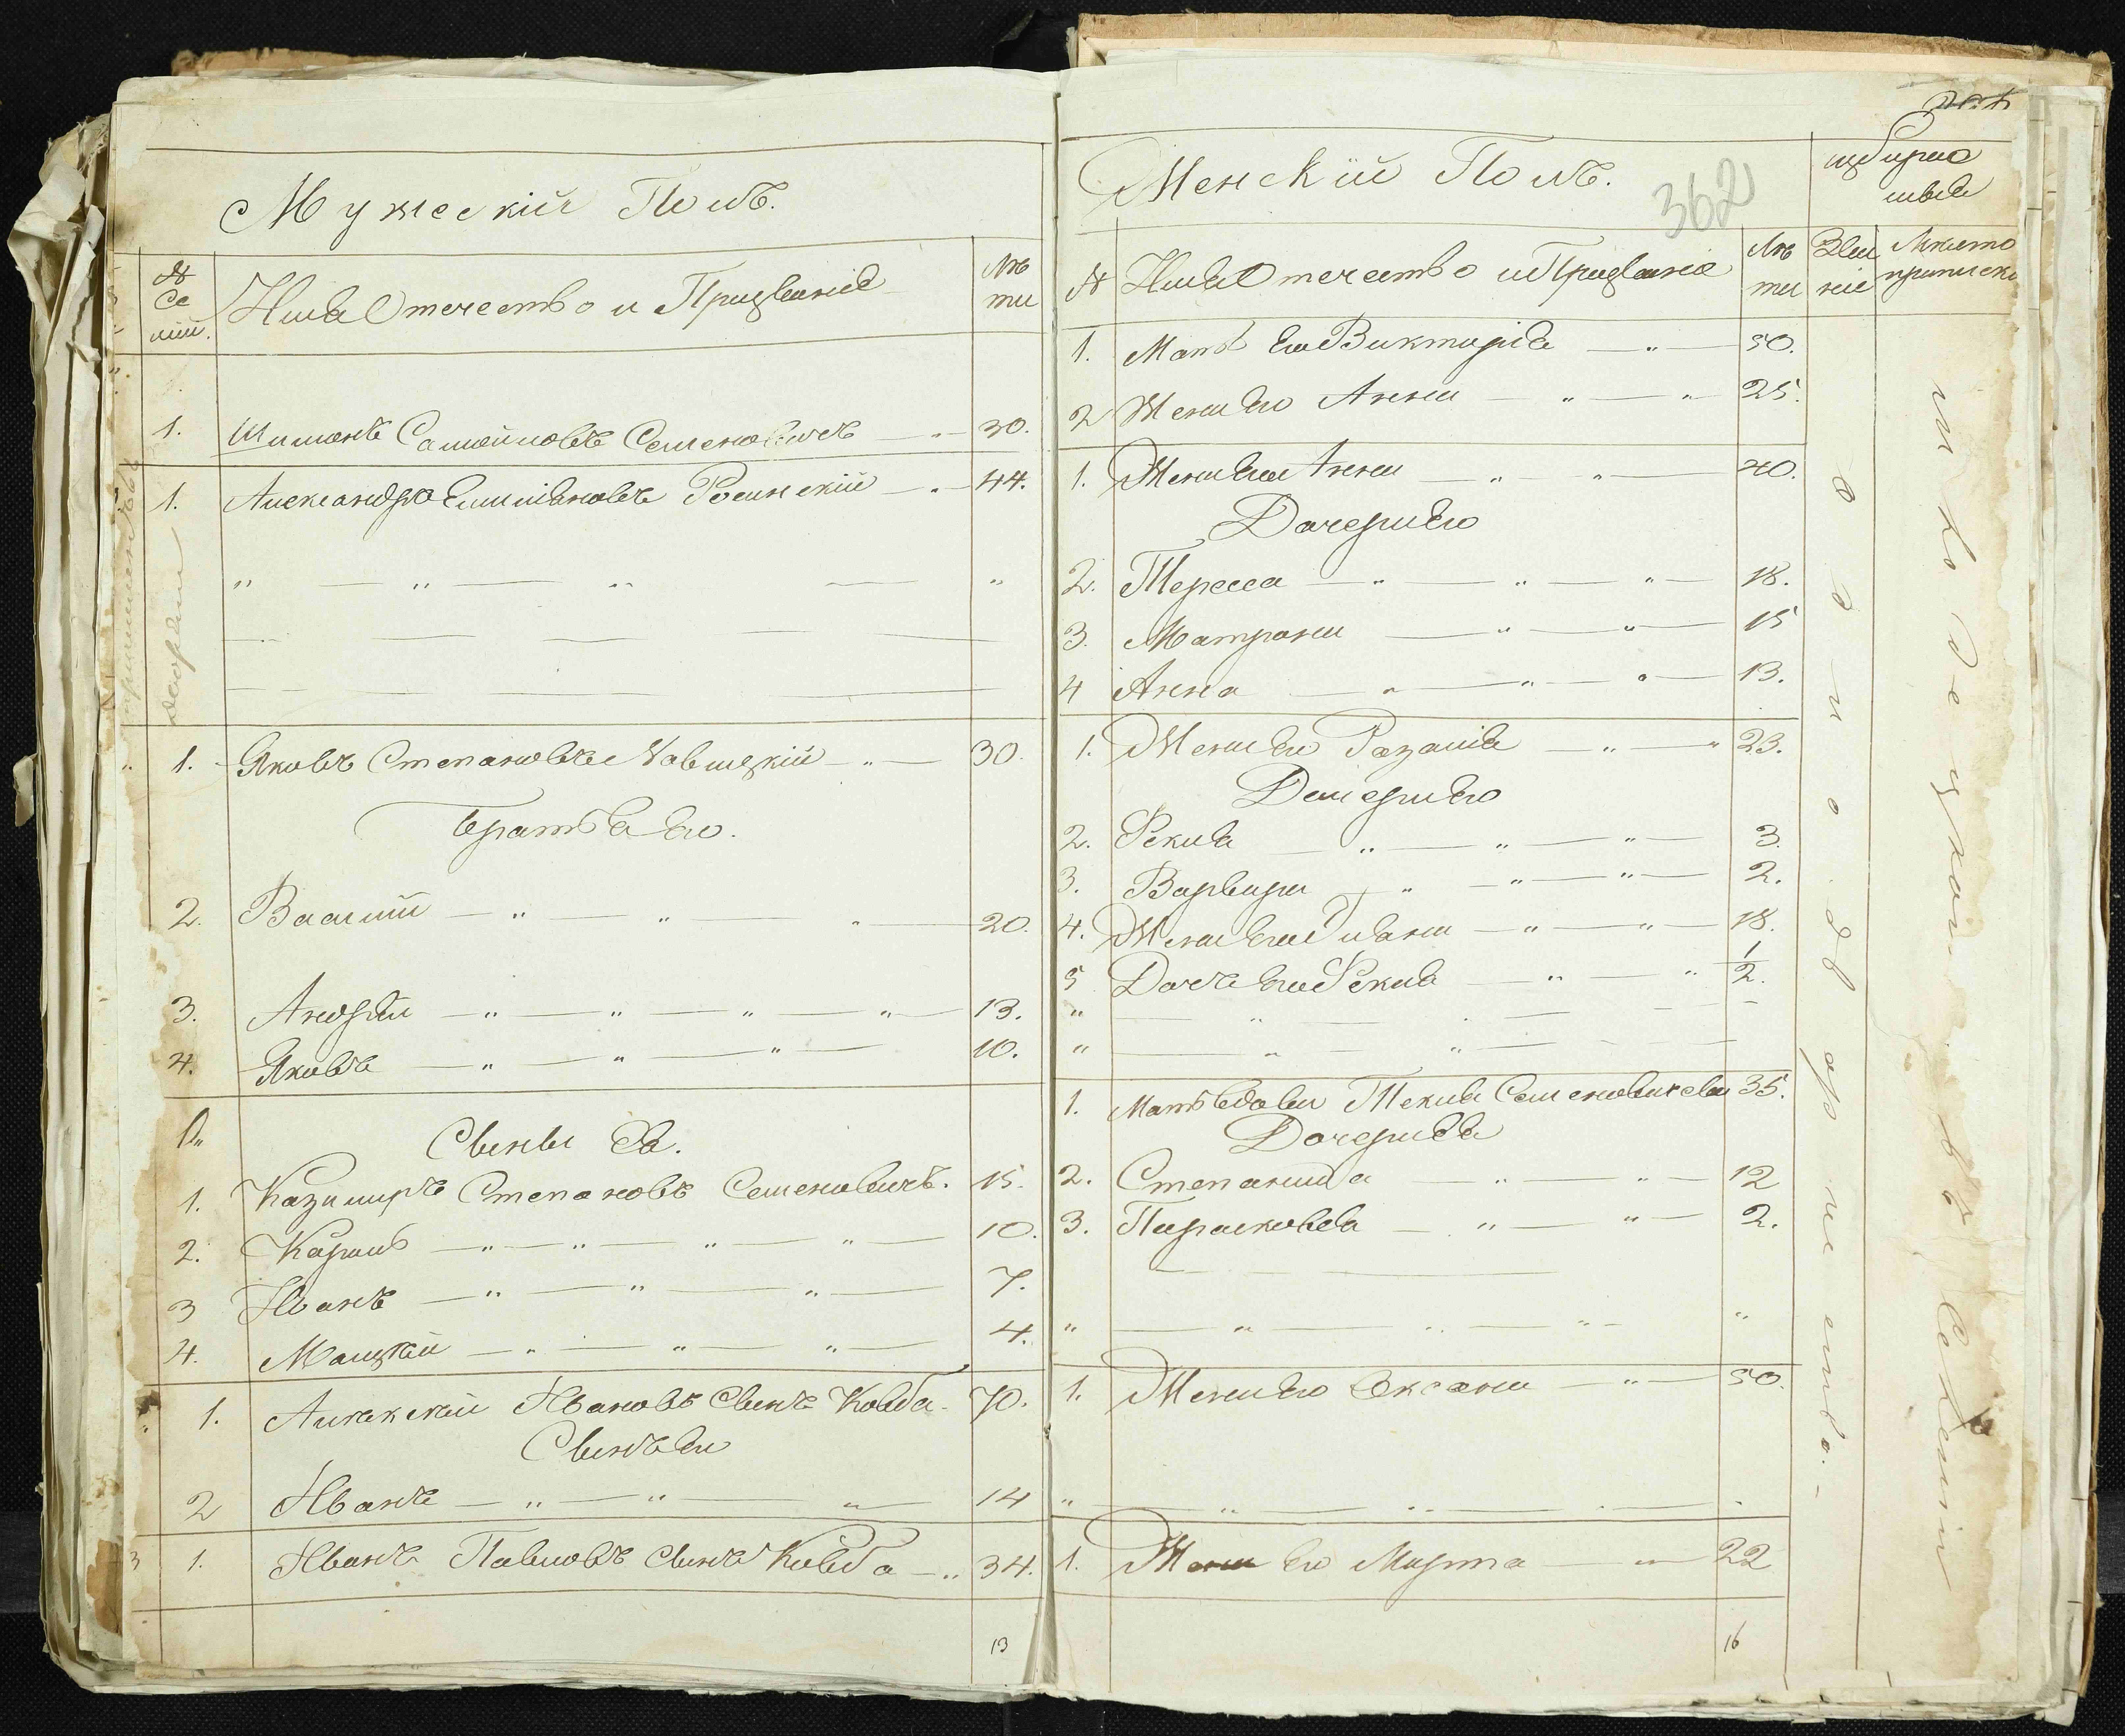 Мужескій Полъ.
№ Се мій.
Имя Отечество и Призваніе
Лѣ ты
1. Шимонъ Самойловъ Семеновичъ 30.
1. Александръ Емиліановъ Росинскій 44.
1. Яковъ Степановъ 30.
Братья Его.
2. Василій 20.
3. Андрей 13.
4. Яковъ 10.
Сыны Ея.
1. Казимиръ Степановъ Семеновичъ. 15.
2. Кароль 10.
3 Иванъ 7.
4. Мацѣй 4.
1. Алексѣй Ивановъ Сынъ Ковба 70.
Сынъ Его
2 Иванъ 14
1. Иванъ Павловъ Сынъ Ковба 34.
13
Женскій Полъ.
362
№ Имя Отечество и Призваніе
Лѣ ты
Зва ніе
1. Мать Его Викторія 50.
2 Жена Его Анна 25.
1. Жена Его Анна 40.
Дочери Его
2. Тересса 18.
3. Матрона 15
4 Анна 13.
1. Жена Его Розалія 23.
Дочери Его
2. Фекла 3.
3. Варвара 2.
4. Жена Его 18.
5 Дочь Его Фекла 1/2.
1. Мать Вдова Текля Семеновичева 35.
Дочери Ея
2. Степанида 12
3. Парасковея 2.
1. Жена Его Оксана 50.
1. Жена Его Марта 22
16
однодворчество.